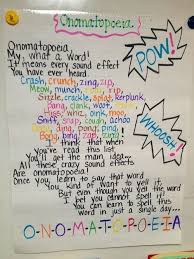 Onomatopoeia
Onomatopoeia
My, what a word!
It means every sound effect
You have ever heard.
Crash, crunch, zing, zip,
Meow, munch, roar, rip,
Sizzle, crackle, splat, kerplunk,
pang, clank, woof,
Hiss, whiz, oink, moo,
Sniff, snap, cough, achoo
Dong, ding, pong, ping,
Bong, bing,
I think that when
you've read this list
You'll get the main idea...
All these crazy sound effects
Are onomatopoeia!
Once you, learn to say that word
You kind of want to yell it.
But even though you yell the word
I bet you cannot spell it
You can learn to spell this
word in just a single day...
O-N-O-M-A-T-O-P-O-E-I-A
POW!
WHOOSH!